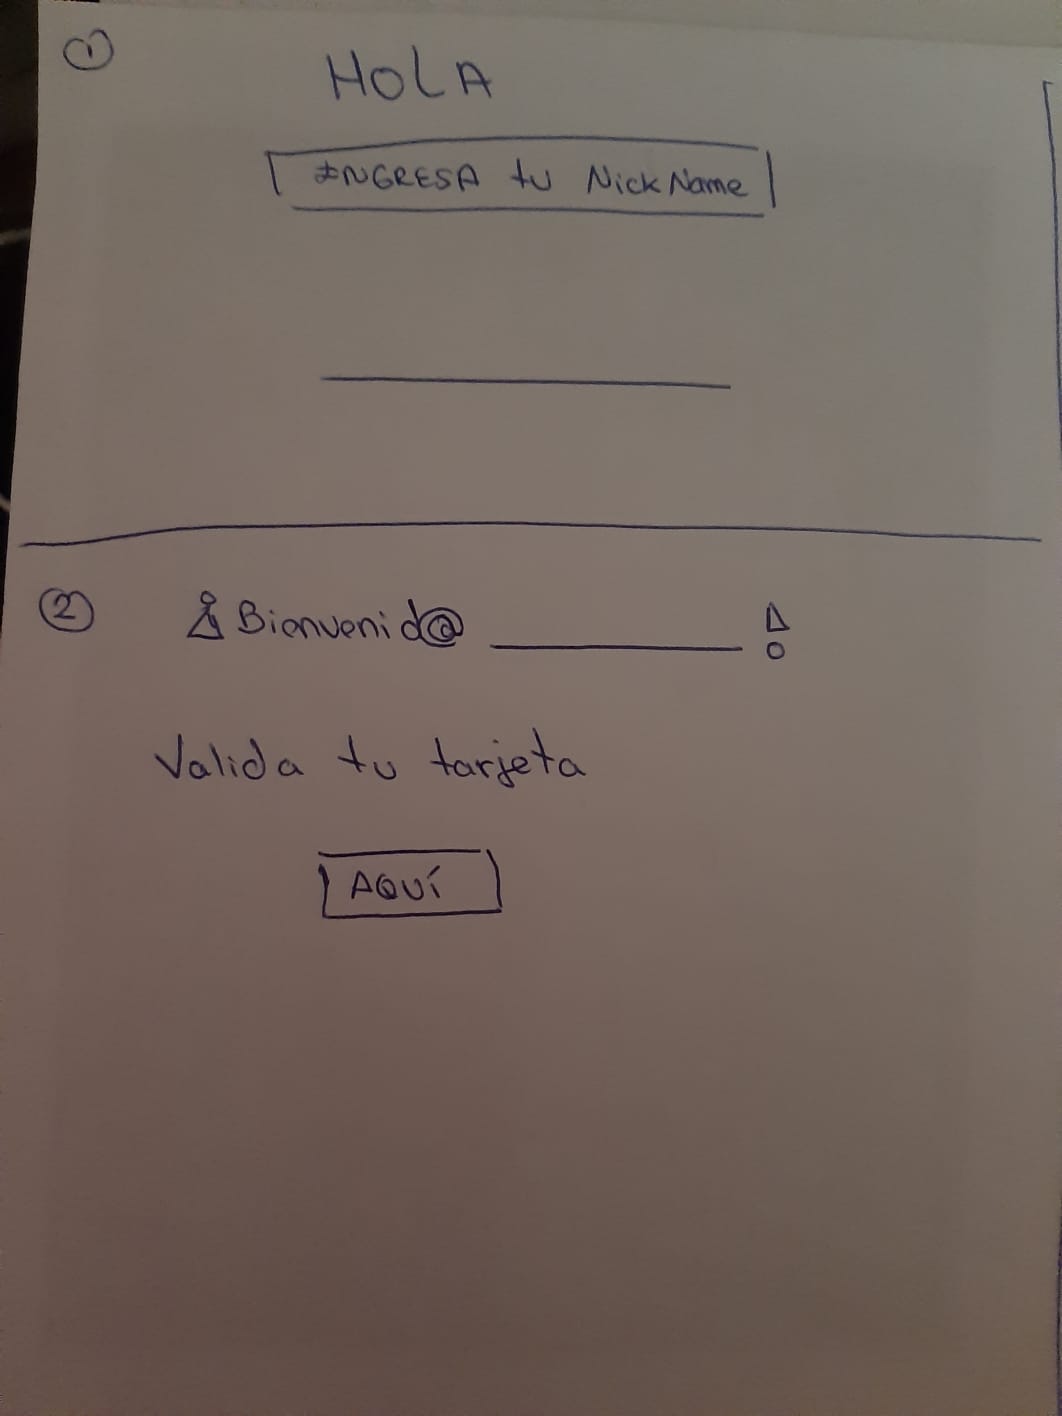 1
HOLA
INGRESA tu NickName
2
¡Bienvenid@ ________ !
Valida tu tarjeta
AQUÍ